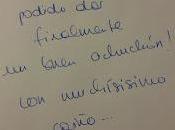 podido dar
finalmente
un buen achuchón!
con muchísisimo
cariño...